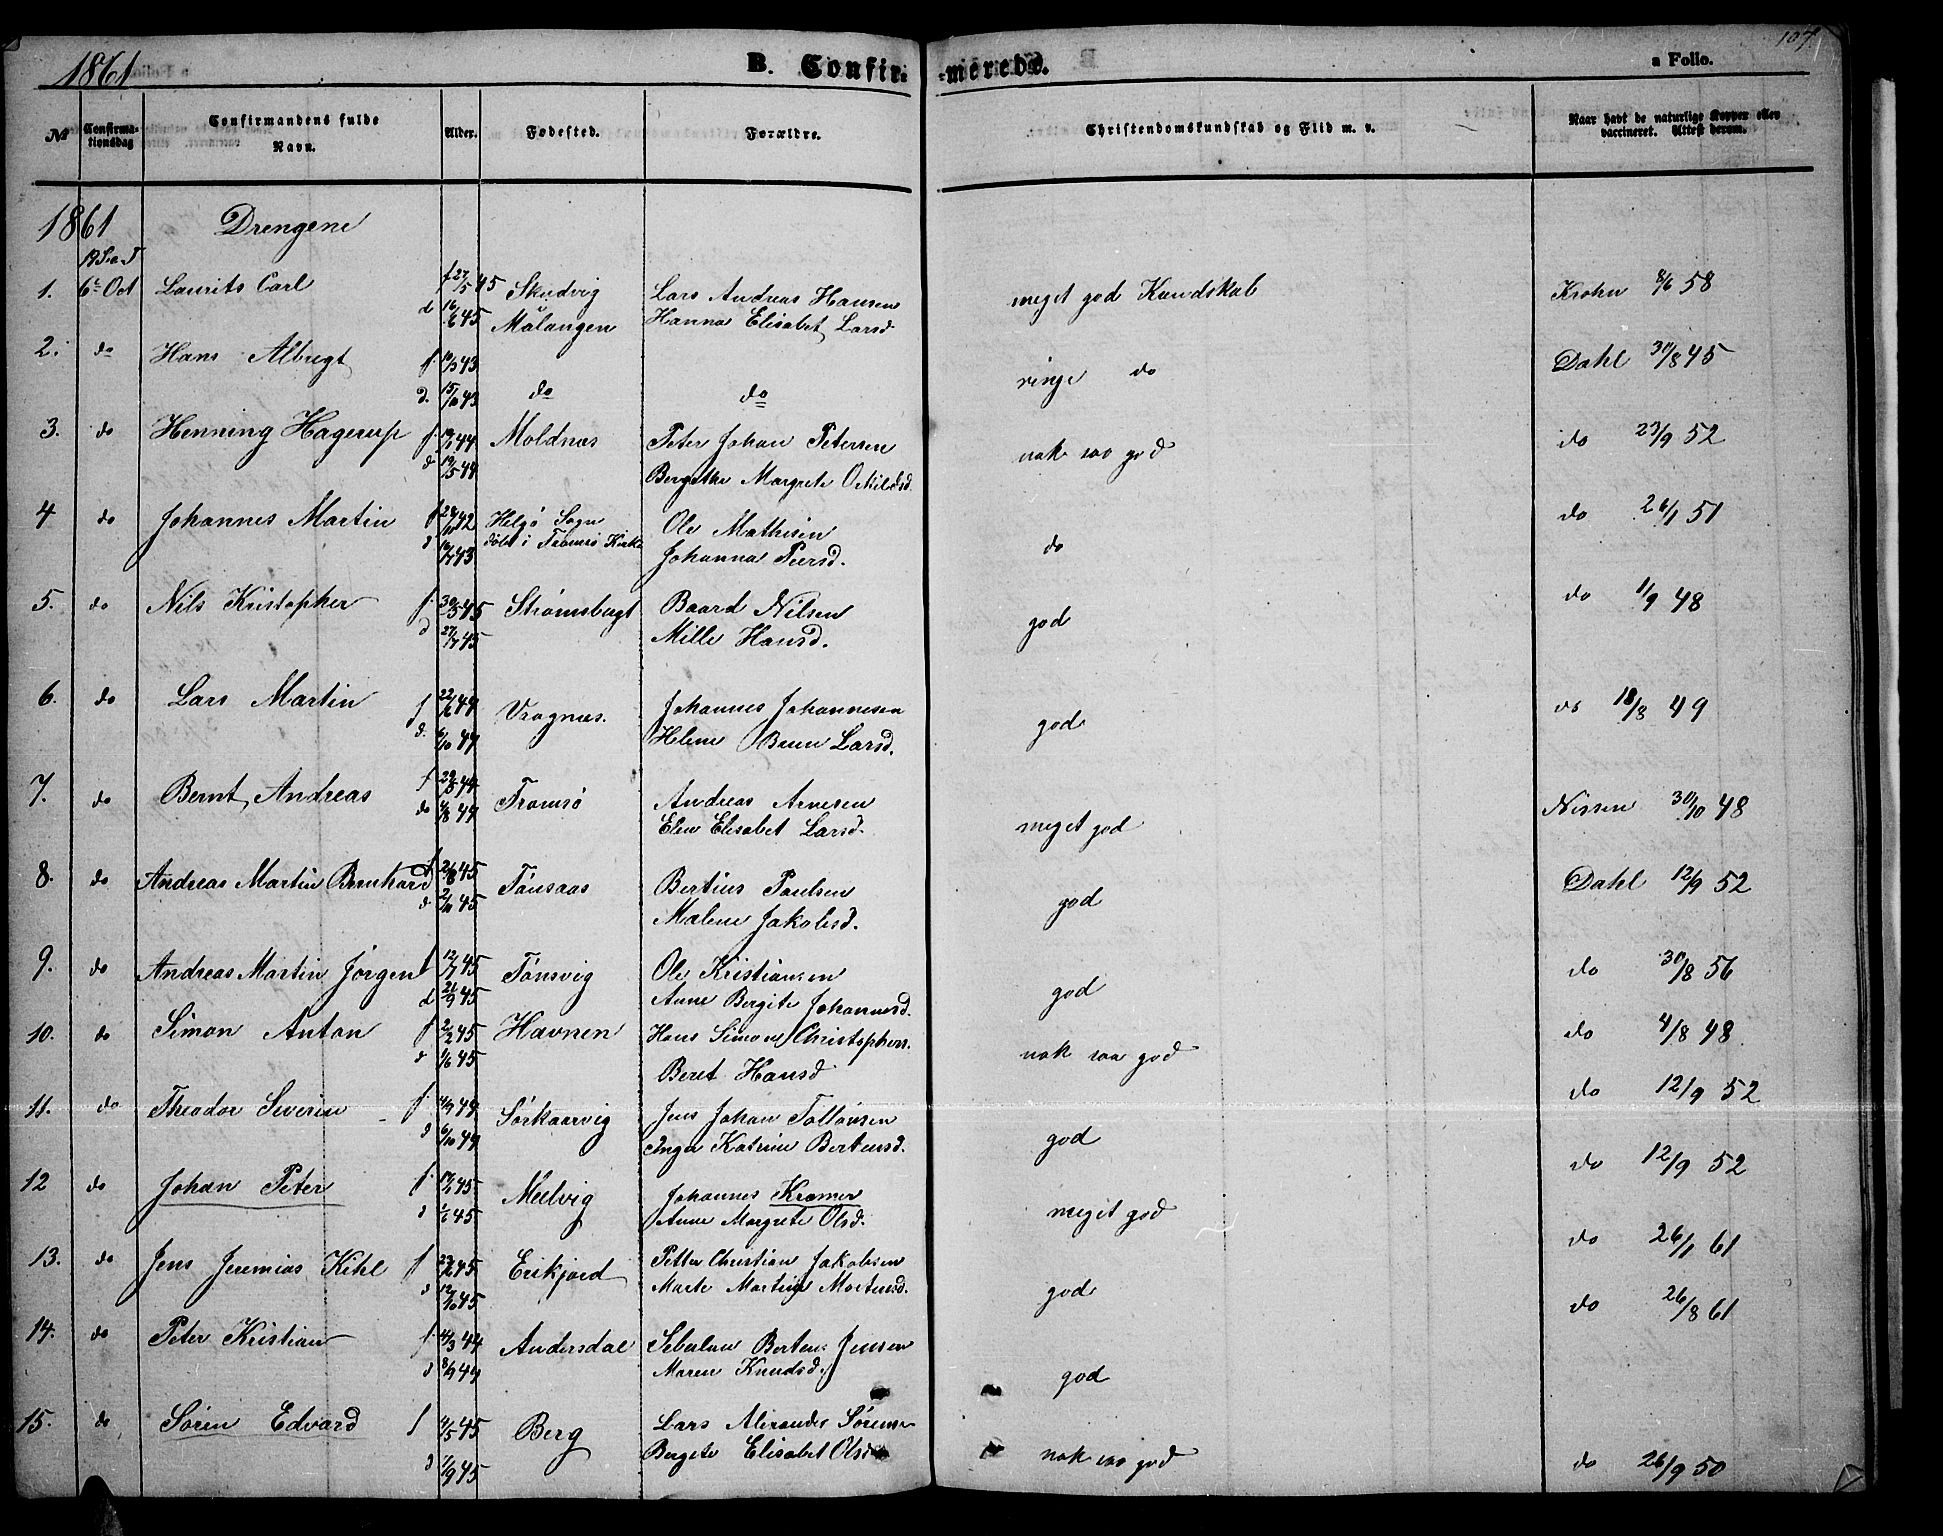 1861
B. Confir-
-merede.
a Folio.
107
№
Confirma-
tionsdag
Confirmandens fulde
Navn.
Alder.
Fødested.
Forældre.
Christendomskundskab og Flid m. v.
Naar havt de naturlige Kopper eller
vaccineret. Attest herom.
1861 Drengene
1. 6te Oct Laurits Carl f 27/5 45 Skudvig Lars Andreas Hansen meget god Kundskab Krohn 8/6 58
d 16/6 45 Målangen Hanna Elisabet Larsd.
2. do Hans Albregt f. 10/3 43 ringe do Dahl 30/8 45
d. 15/10 43 do do
3. do Henning Hagerup f. 44 Moldnæs Peter Johan Petersen nok saa god do 23/9 52
d 19/5 44 Bergitha Margrete Oskildsd.
4 do Johannes Martin f 42 Helgö Sogn Ole Mathisen do do 26/1 51
d 43 döbt i Tromsö Kirke Johanna Peersd.
5. do Nils Kristopher f. 30/5 45 Strömsbugt Baard Nilsen god do 11/9 48
d 27/7 45 Mille Hansd.
6. do Lars Martin f 44 Vragnæs. Johannes Johannesen god do 18/8 49
d. 6/10 44 Helene Bruu Larsd.
7. do Bernt Andreas f 44 Tromsö Andreas Arnesen meget god Nissen 30/10 48
do 4/8 44 Elen Elisabet Larsd.
8. do Andreas Martin Bernhard f 45 Tönsaas Bertius Paulsen god Dahl 12/9 52
d 2/10 45 Malene Jakobsd.
9. do Andreas Martin Jörgen f 12/7 45 Tönsvig Ole Kristiansen god do 30/8 56
d 21/9 45 Anne Bergite Johannesd.
10. do Simon Anton f 2/2 45 Havnen Hans Simon Christophers. nok saa god do 4/8 48
d 1/6 45 Beret Hansd
11. do Theodor Severin f. 4/9 44 Sörkaarvig Jens Johan Tollönsen god do 12/9 52
d 6/10 44 Inger Katrine Bertensd.
12 do Johan Peter f. 45 Meelvig Johannes Kræmer meget god do 12/9 52
d 1/6 45 Anne Margrete Olsd.
13. do Jens Jeremias Kihl f 45 Erikjord Petter Christian Jakobsen god do 26/1 61
d 12/10 45 Marte Martina Mortensd.
14. do Peter Kristian f. 4/3 44 Andersdal Sebulon Berten Jensen god do 26/8 61
d 8/9 44 Maren Knudsd.
15. do Sören Edvard f 4/5 45 Berg Lars Alexander Sörensen nok saa god do 26/9 50
d 1/9 45 Bergete Elisabet Olsd